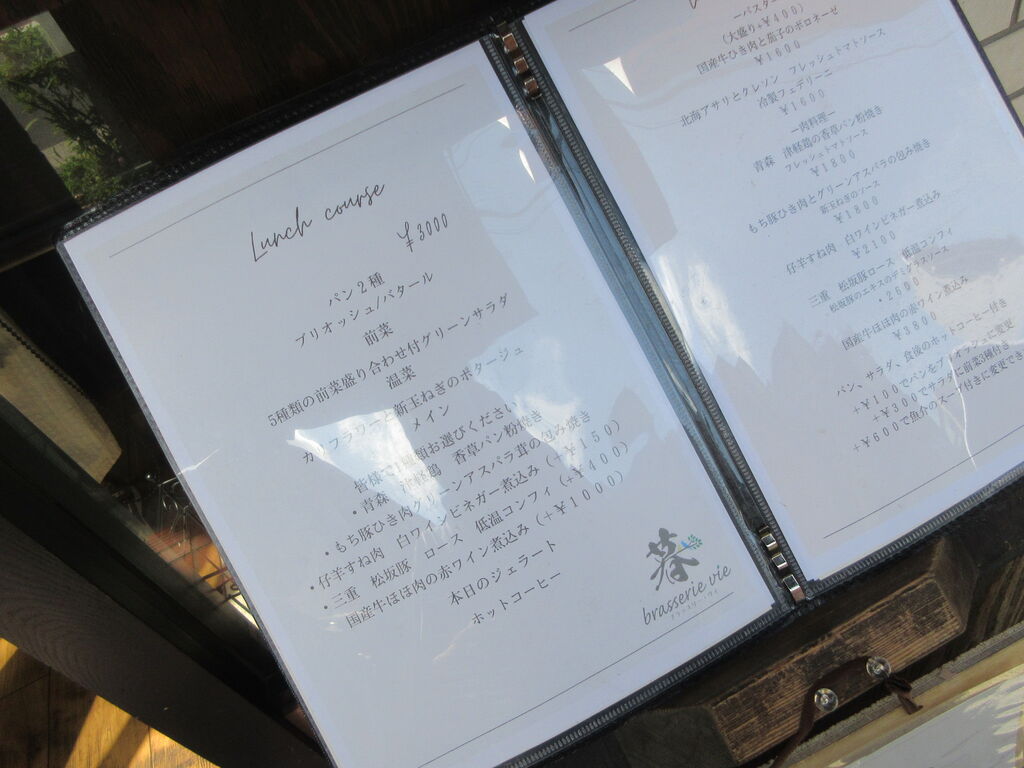 Lunch course
¥3000
パン2種
ブリオッシュ/バタール
前菜
5種類の前菜盛り合わせ付グリーンサラダ
温菜
カリフラワーと新玉ねぎのポタージュ
メイン
皆様で1種類お選びください
・青森 津軽鶏 香草パン粉焼き
・もち豚ひき肉グリーンアスパラ茸の包み焼き
・仔羊すね肉 白ワインビネガー煮込み(+¥150)
・三重 松坂豚 ロース 低温コンフィ(+¥400)
国産牛ほほ肉の赤ワイン煮込み(+¥1000)
本日のジェラート
ホットコーヒー
暮
brasserie vie
ブラッスリー・ヴィ
―パスタ
(大盛り+¥400)
国産牛ひき肉と茄子のボロネーゼ
¥1600
北海アサリとクレソン フレッシュトマトソース
冷製フェデリーニ
¥1600
―肉料理―
青森 津軽鶏の香草パン粉焼き
フレッシュトマトソース
¥1800
もち豚ひき肉とグリーンアスパラの包み焼き
新玉ねぎのソース
¥1800
仔羊すね肉 白ワインビネガー煮込み
¥2100
三重 松坂豚ロース 低温コンフィ
松坂豚のエキスのデミグラスソース
・2600
国産牛ほほ肉の赤ワイン煮込み
¥3800
パン、サラダ、食後のホットコーヒー付き
+¥100でパンをブリオッシュに変更
+¥300でサラダに前菜3種付き
+¥600で魚介のスープ付きに変更でき